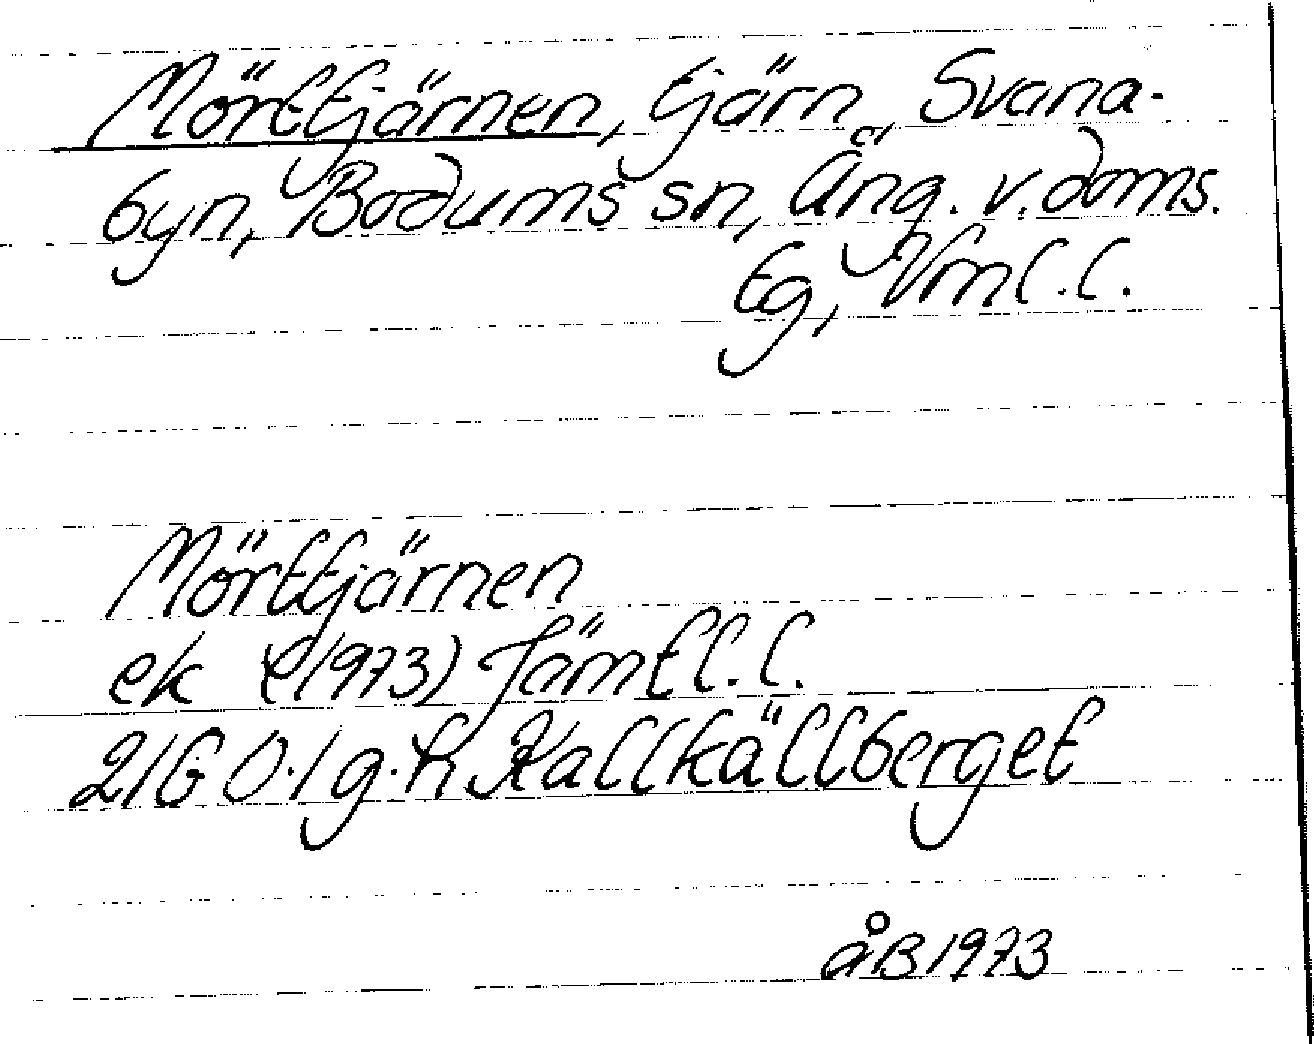 Mörttjärnen, tjärn, Svana-
byn, Bodums sn, Ång. v. doms.
tg, Vrnl. l.
Mörttjärnen
ek (1973) Jämtl. l.
21G 0-1 g.h Kallkällberget
åB 1973